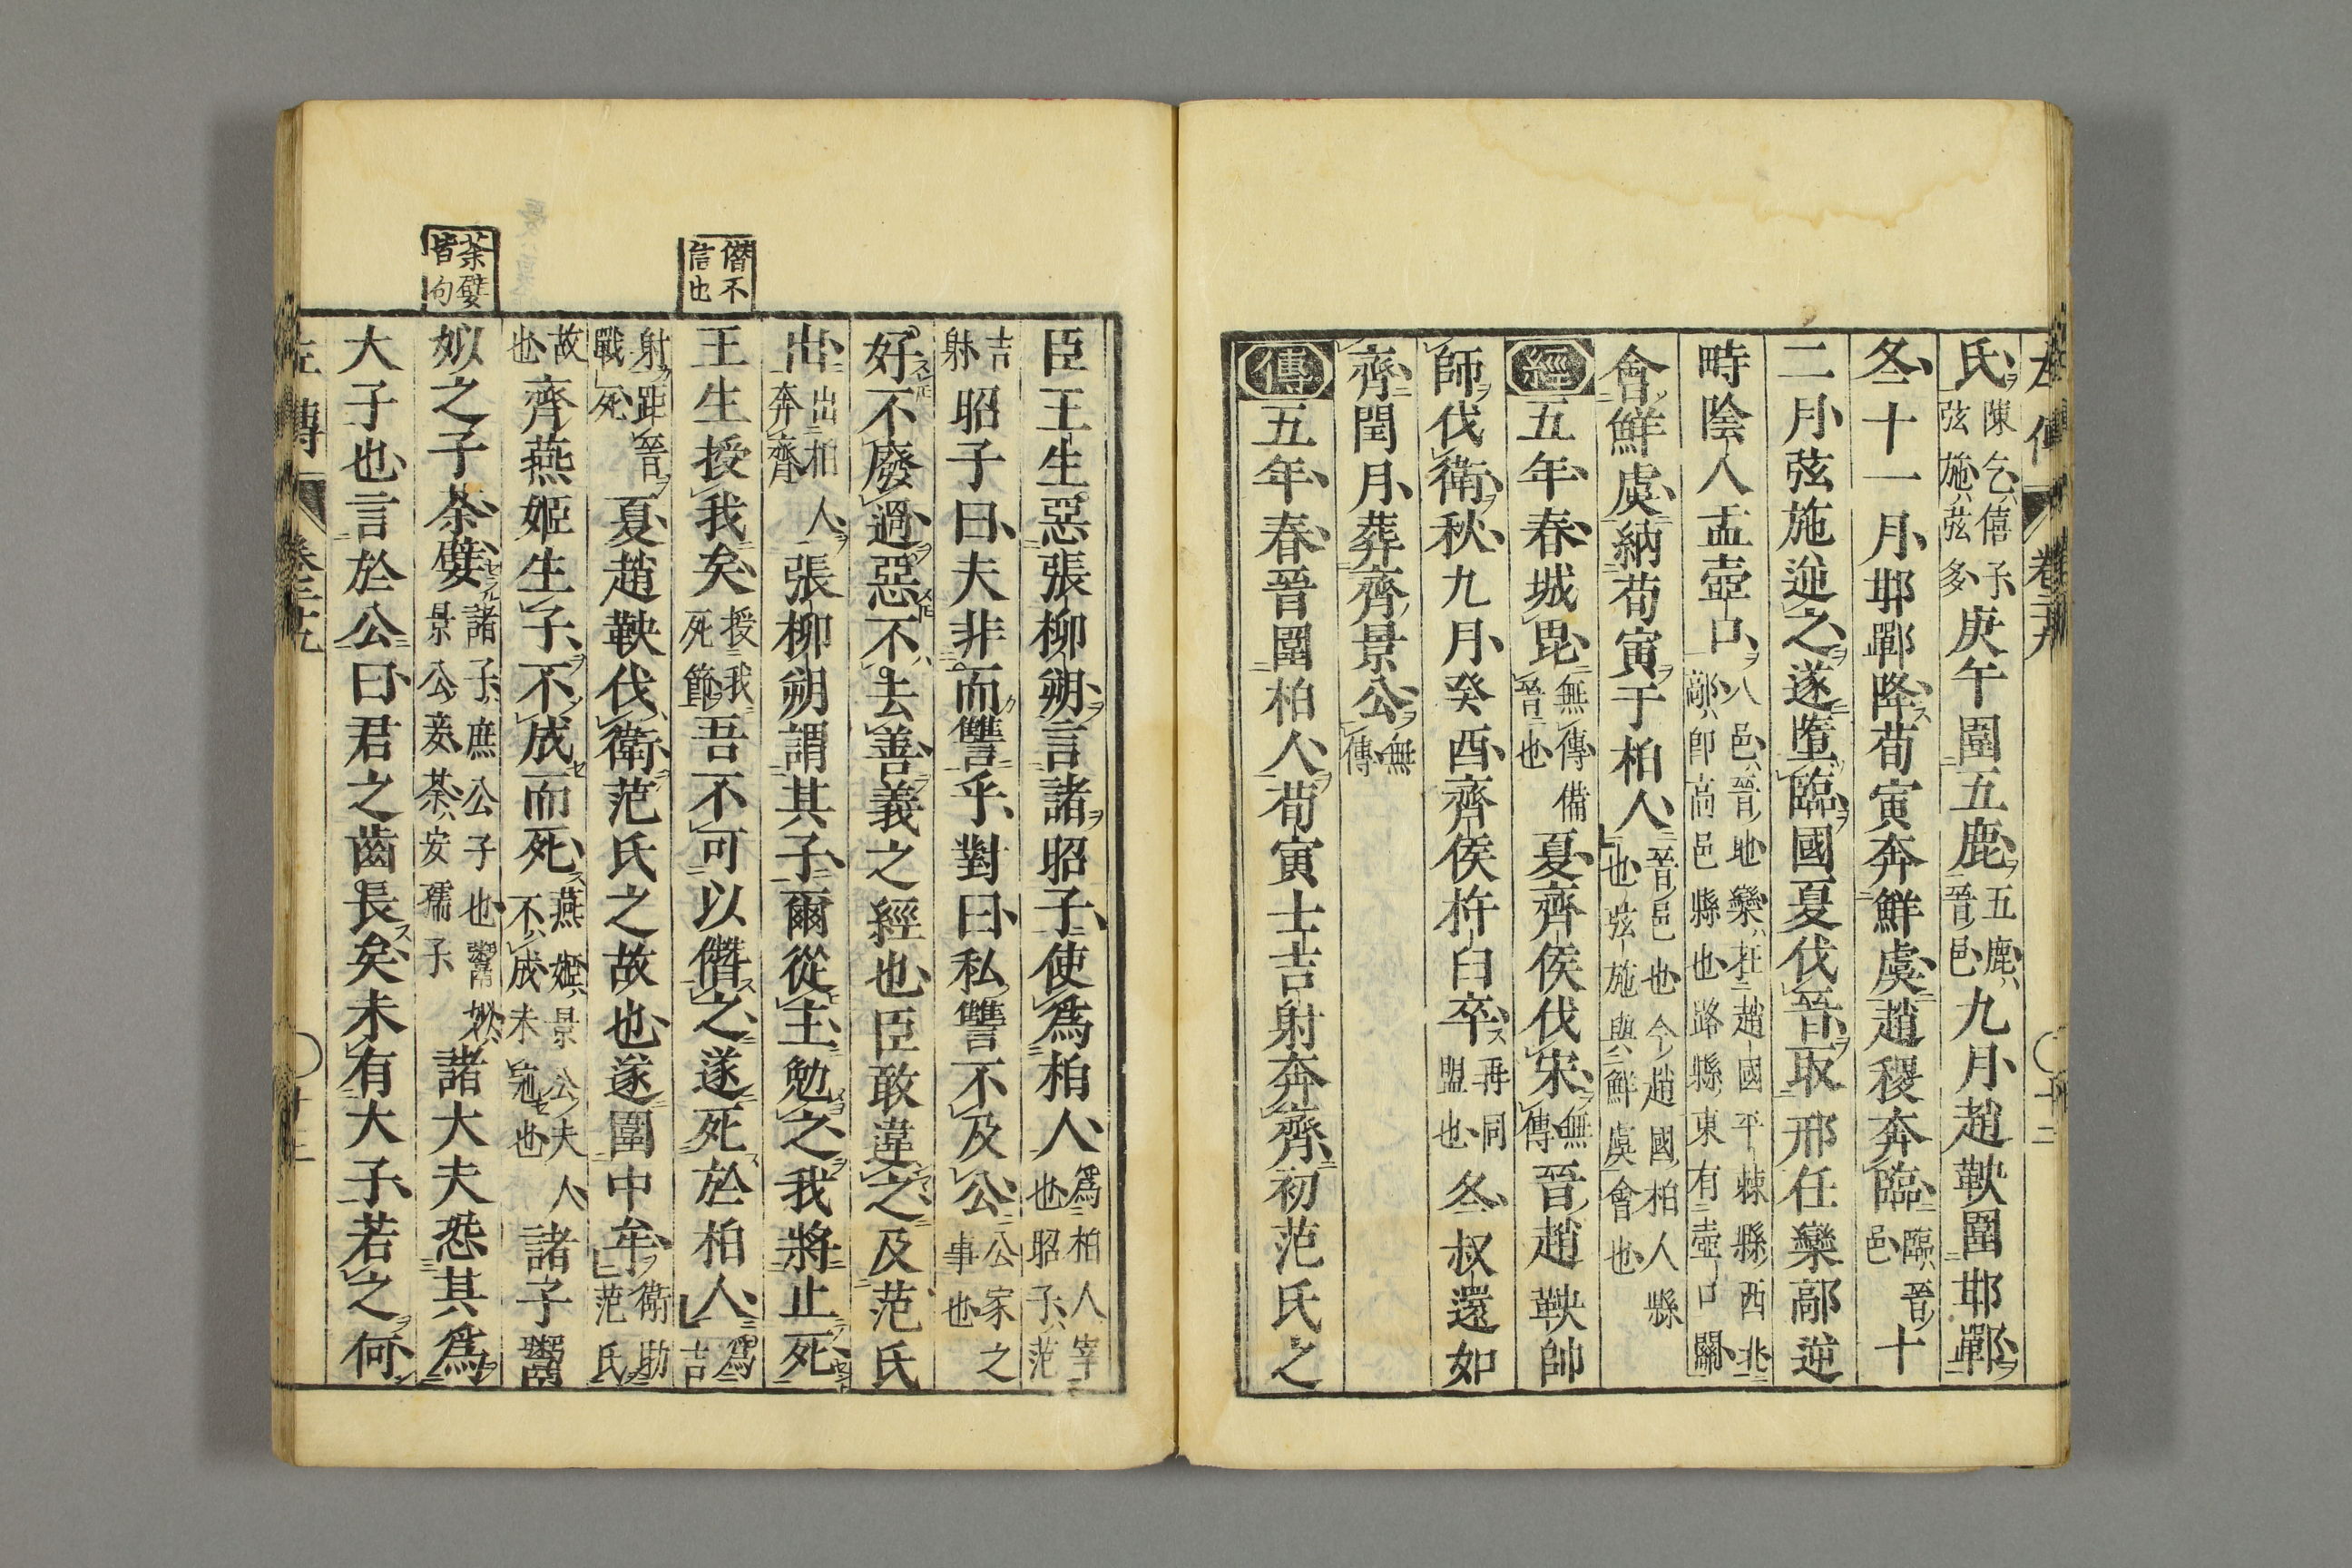 左傳 卷二十九 〇十二
氏陳乞僖子弦施弦多庚午圍五鹿五鹿晉邑九月趙鞅圍邯鄲
冬十一月邯鄲降荀寅奔鮮虞趙稷奔臨臨晉邑十
二月弦施逆之遂墮臨國夏伐晉取邢任欒鄗逆
畤陰人盂壺口八邑晉地欒在趙國平棘縣西北鄗即高邑縣也路縣東有壺口關
會鮮虞納荀寅于柏人晉邑也今趙國柏人縣也弦施與鮮虞會也
經五年春城毗無傳備晉也夏齊侯伐宋無傳晉趙鞅帥
師伐衛秋九月癸酉齊侯杵臼卒再同盟也冬叔還如
齊閏月葬齊景公無傳
傳五年春晉圍柏人荀寅士吉射奔齊初范氏之
臣王生惡張柳朔言諸昭子使爲柏人爲柏人宰也昭子范
吉射昭子曰夫非而讐乎對曰私讐不及公公家之事也
好不廢過惡不去善義之經也臣敢違之及范氏
出出柏人奔齊張柳朔謂其子爾從主勉之我將止死
僭不信也
王生授我矣授我死節吾不可以僭之遂死於柏人爲吉
射距晉戰死夏趙鞅伐衛范氏之故也遂圍中牟衛助范氏
故也齊燕姬生子不成而死燕姬景公夫人不成未冠也諸子鬻
荼嬖皆句
姒之子荼嬖諸子庶公子也鬻姒景公妾荼安孺子諸大夫恐其爲
大子也言於公曰君之齒長矣未有大子若之何
左傳 卷二十九 〇十三